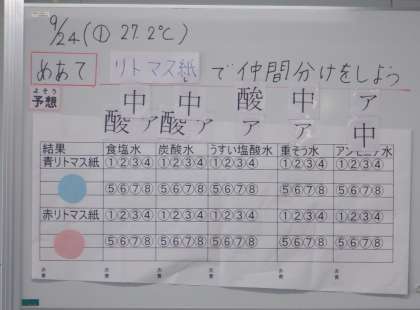 9/24(①27.2℃)
めあて リトマス紙で仲間分けをしよう
よそう
予想
中 中 酸 中 ア
酸 ア 酸 ア ア ア 中
結果 食塩水 炭酸水 うすい塩酸水 重そう水 アンモニア水
青リトマス紙 ①②③④ ①②③④ ①②③④ ①②③④ ①②③④
⑤⑥⑦⑧ ⑤⑥⑦⑧ ⑤⑥⑦⑧ ⑤⑥⑦⑧ ⑤⑥⑦⑧
赤リトマス紙 ①②③④ ①②③④ ①②③④ ①②③④ ①②③④
⑤⑥⑦⑧ ⑤⑥⑦⑧ ⑤⑥⑦⑧ ⑤⑥⑦⑧ ⑤⑥⑦⑧